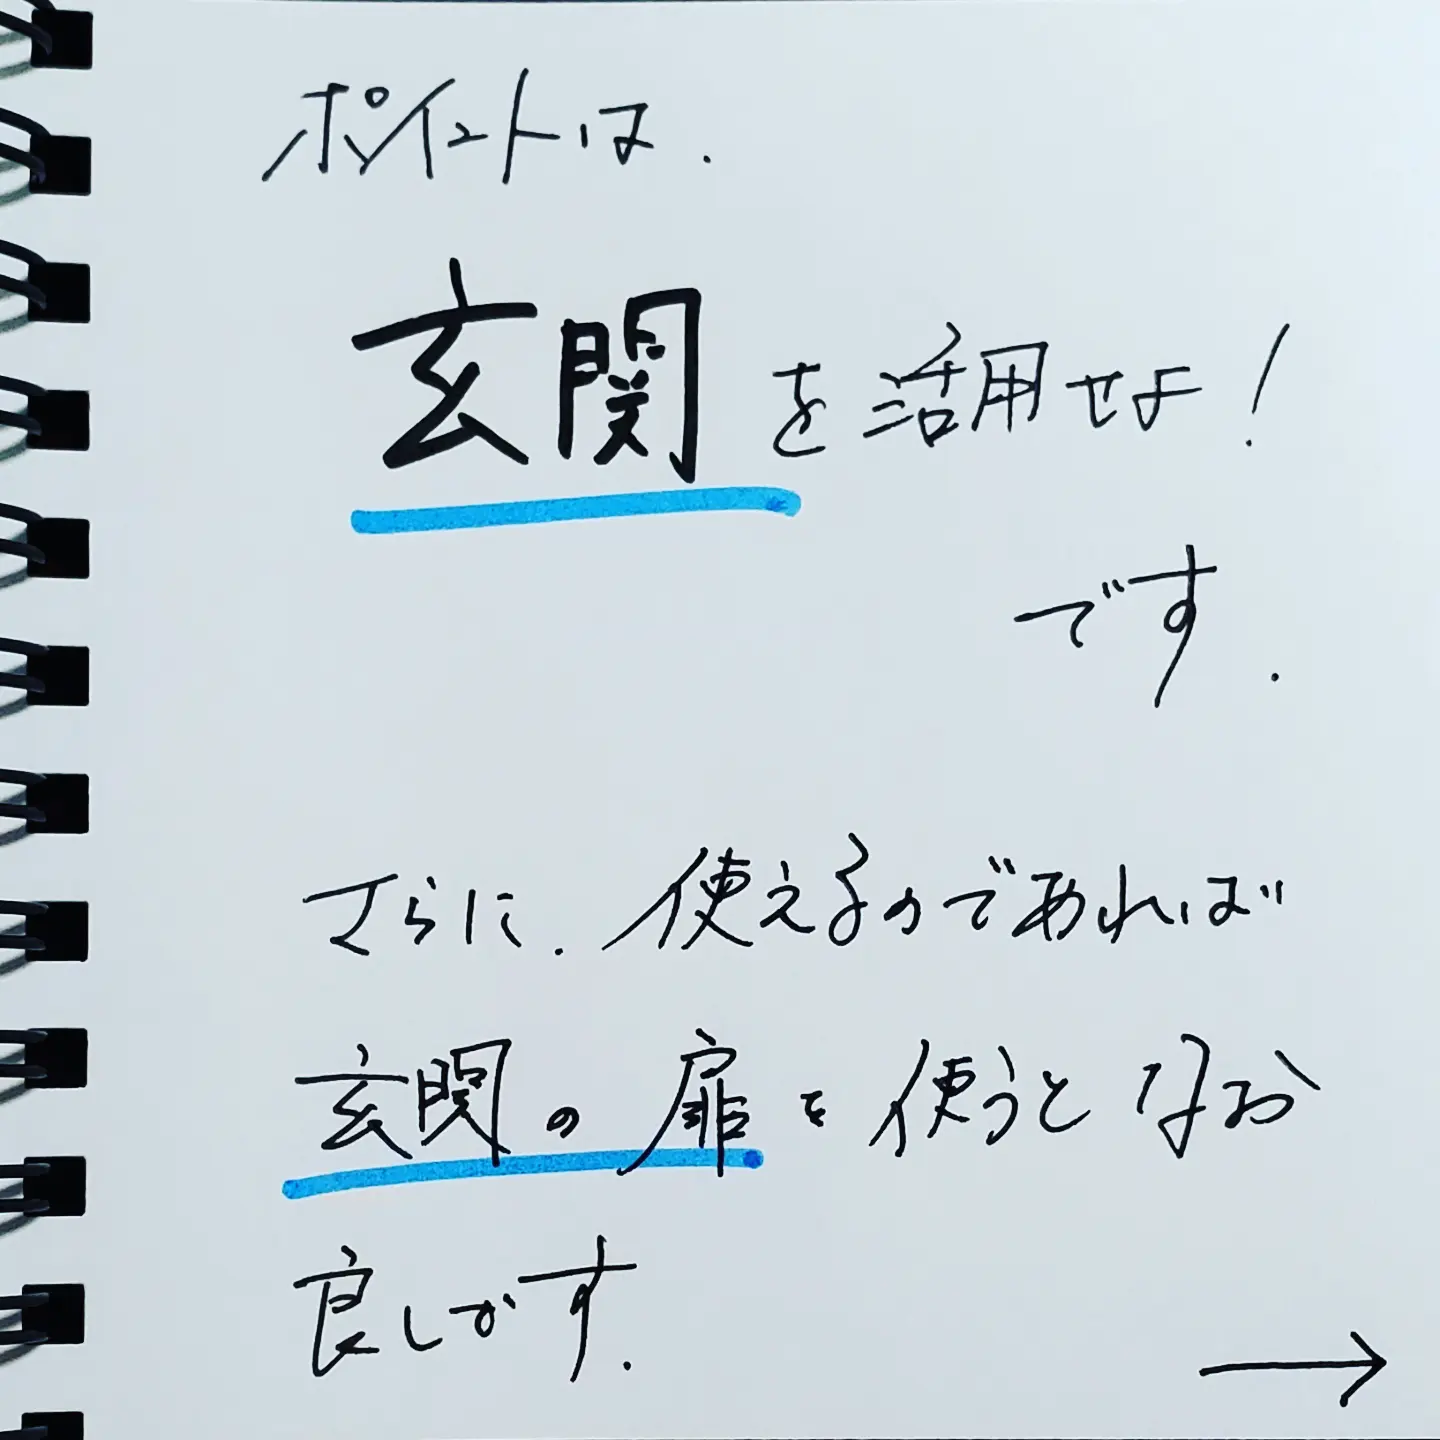 ポイントは.
玄関を活用せよ!
です.
さらに.使えるのであれば
玄関の扉を使うとなお
良しです.
→